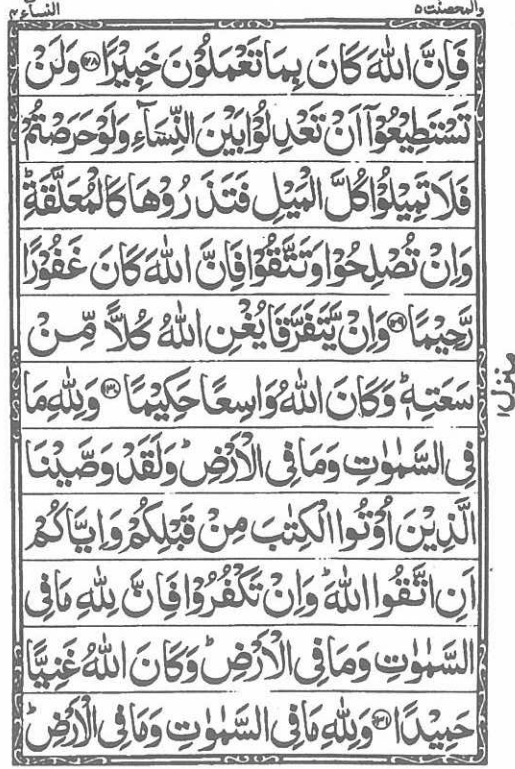 والمحصنت ۵
النساء ۴
فَاِنَّ اللّٰهَ كَانَ بِمَا تَعْمَلُوْنَ خَبِيْرًا ﴿۱۲۸﴾ وَلَنْ
تَسْتَطِيْعُوْۤا اَنْ تَعْدِلُوْا بَيْنَ النِّسَآءِ وَلَوْ حَرَصْتُمْ
فَلَا تَمِيْلُوْا كُلَّ الْمَيْلِ فَتَذَرُوْهَا كَالْمُعَلَّقَةِ ؕ
وَاِنْ تُصْلِحُوْا وَتَتَّقُوْا فَاِنَّ اللّٰهَ كَانَ غَفُوْرًا
رَّحِيْمًا ﴿۱۲۹﴾ وَاِنْ يَّتَفَرَّقَا يُغْنِ اللّٰهُ كُلًّا مِّنْ
سَعَتِهٖ ؕ وَكَانَ اللّٰهُ وَاسِعًا حَكِيْمًا ﴿۱۳۰﴾ وَلِلّٰهِ مَا
فِى السَّمٰوٰتِ وَمَا فِى الْاَرْضِ ؕ وَلَقَدْ وَصَّيْنَا
الَّذِيْنَ اُوْتُوا الْكِتٰبَ مِنْ قَبْلِكُمْ وَاِيَّاكُمْ
اَنِ اتَّقُوا اللّٰهَ ؕ وَاِنْ تَكْفُرُوْا فَاِنَّ لِلّٰهِ مَا فِى
السَّمٰوٰتِ وَمَا فِى الْاَرْضِ ؕ وَكَانَ اللّٰهُ غَنِيًّا
حَمِيْدًا ﴿۱۳۱﴾ وَلِلّٰهِ مَا فِى السَّمٰوٰتِ وَمَا فِى الْاَرْضِ ؕ
منزل ۱